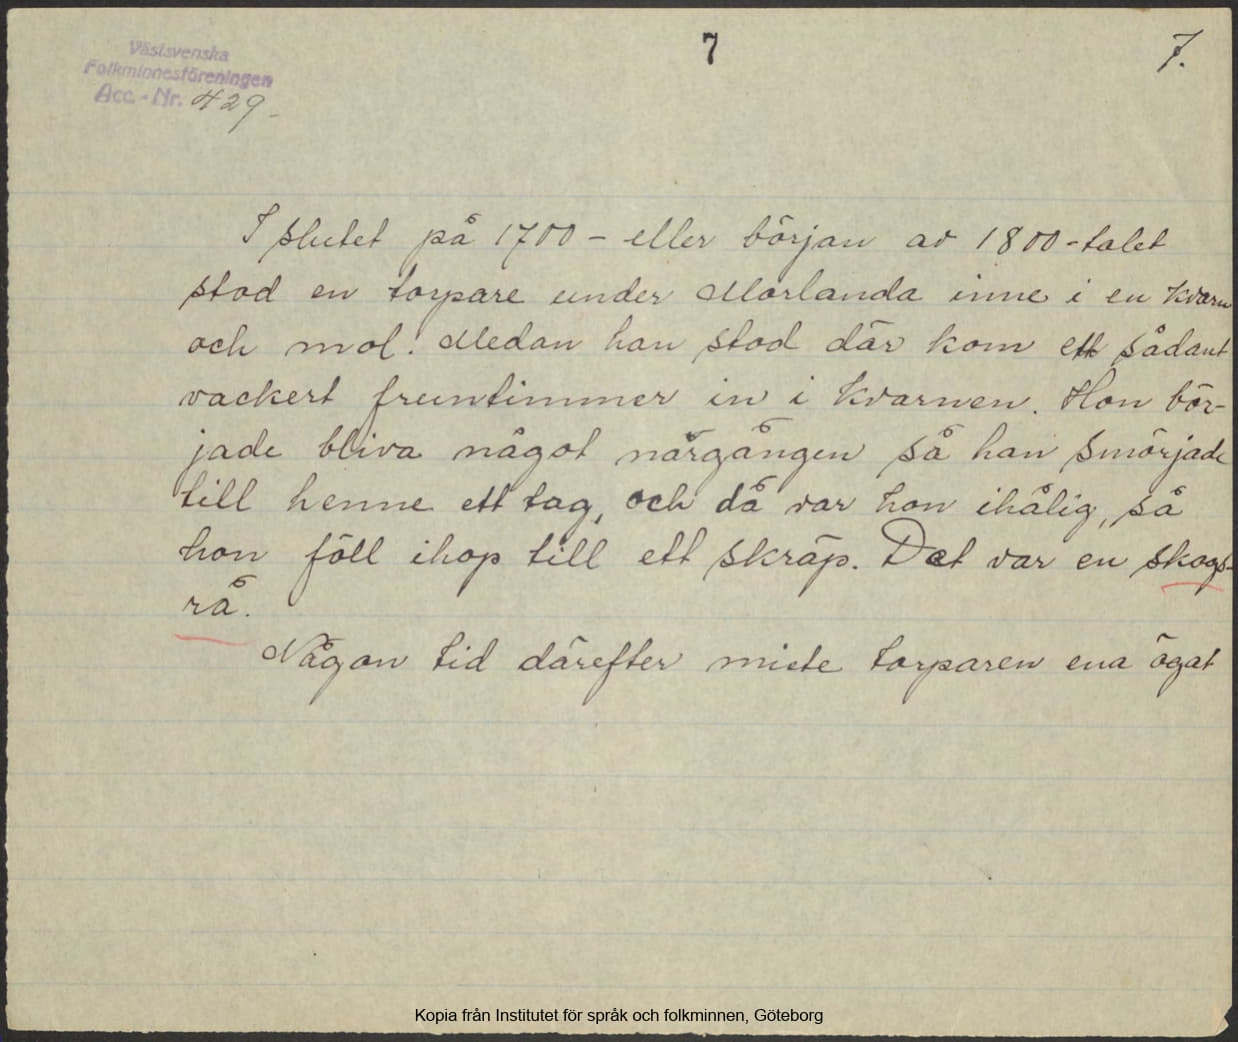 Västsvenska
Folkminnesföreningen
Acc.-Nr. 429.
7
7.
I slutet på 1700- eller början av 1800-talet
stod en torpare under Morlanda inne i en kvarn
och mol. Medan han stod där kom ett sådant
vackert fruntimmer in i kvarnen. Hon bör-
jade bliva något närgången så han smörjade
till henne ett tag, och då var hon ihålig, så
hon föll ihop till ett skräp. Det var en skogs-
rå.
Någon tid därefter miste torparen ena ögat
Kopia från Institutet för språk och folkminnen, Göteborg